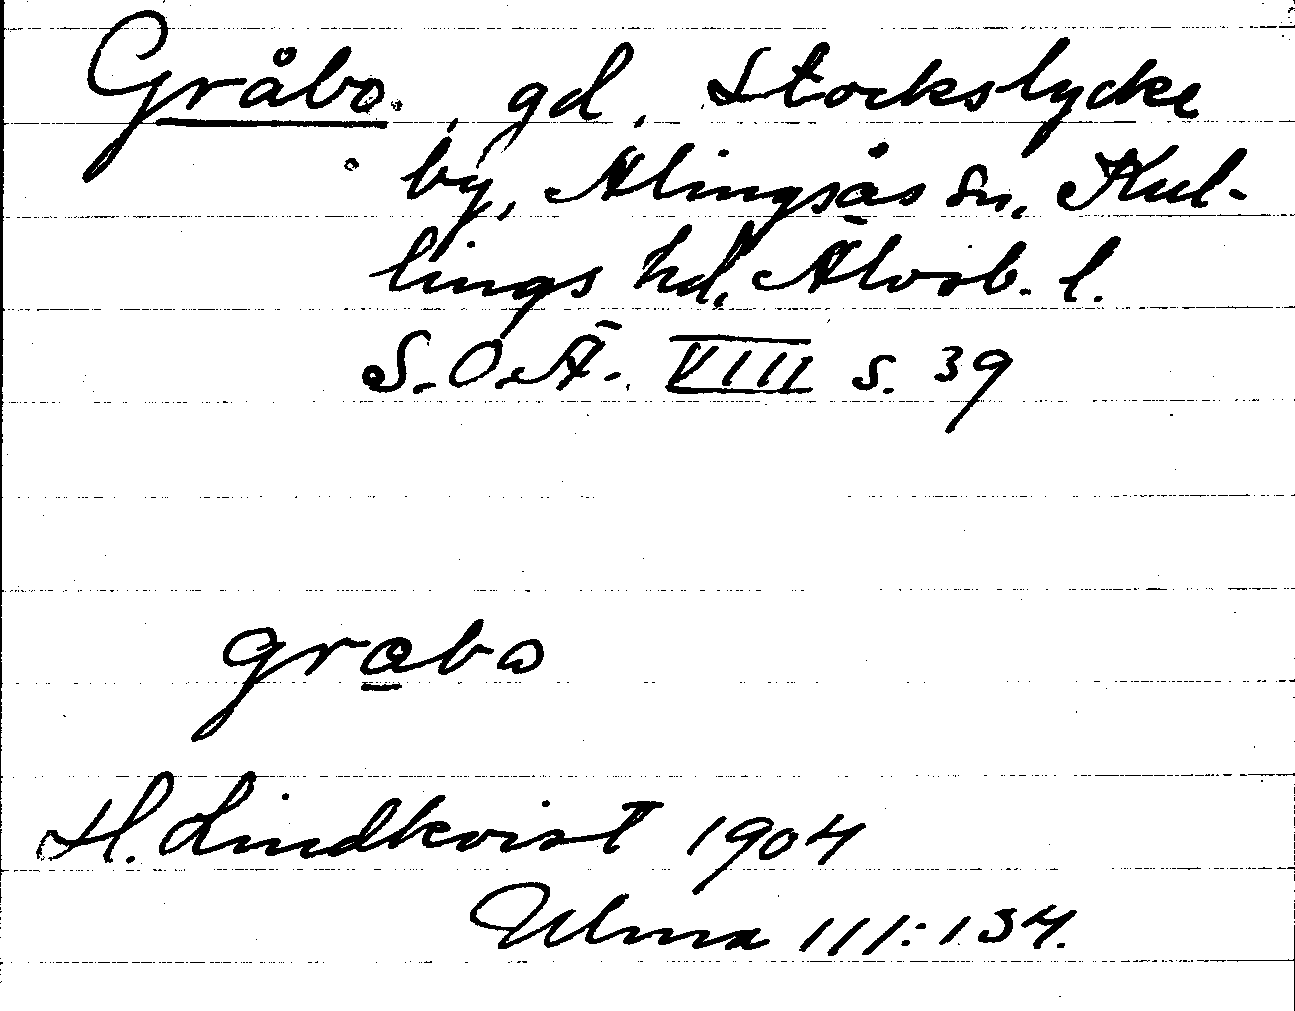 Gråbo, gd, Stockslycke
by, Alingsås sn, Kul-
lings hd, Älvsb. l.
S.O.Ä. VIII s. 39
grabo
H. Lindkvist 1904
Ulma 111:134.